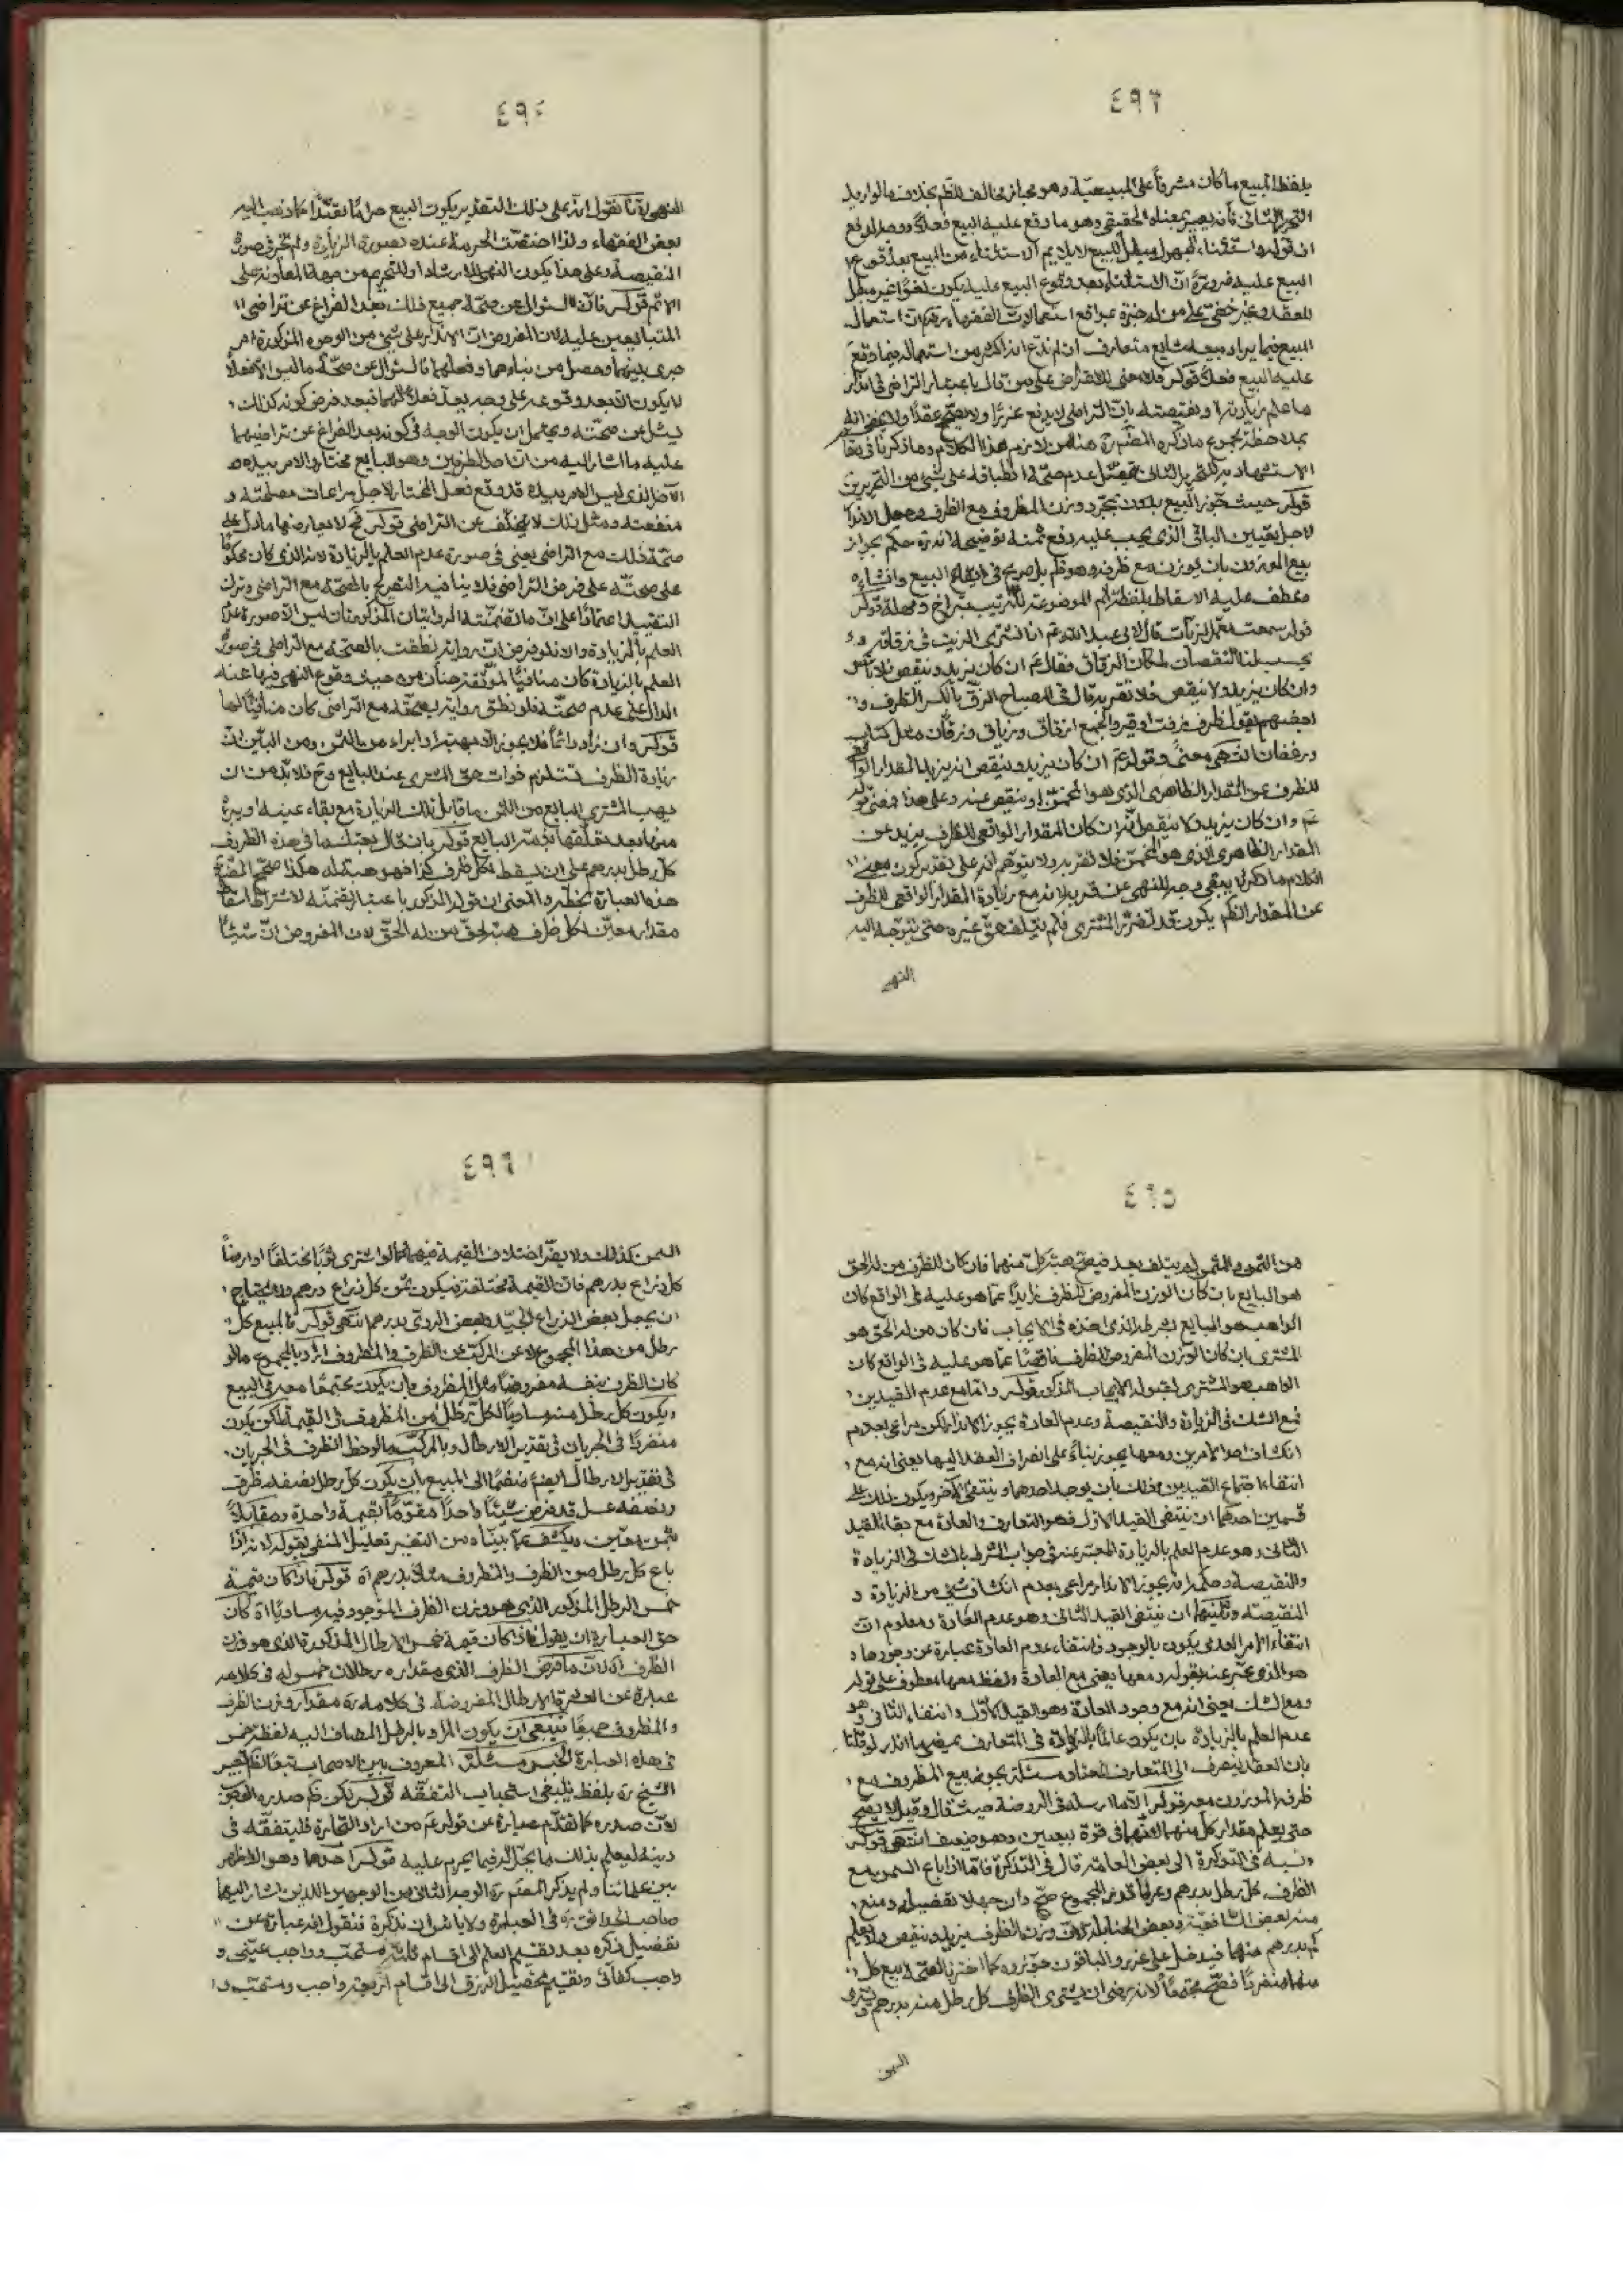 ٤٩٣
بلفظ المبيع ما كان مشرفاً على المبيعيّة وهو مجاز مخالف للظّم بخلاف ما لو اريد
التحرير الثاني فأنه يصير بمعناه الحقيقي وهو ما وقع عليه البيع فعلاً ووصل الدفع
البيع عليه ضرورة أنّ الاستثناء بعد وقوع البيع عليه يكون لغواً غير مبطل
للعقد وغير خفيّ على من له خبرة بمواقع استعمالات الفقهاء استعمال
المبيع فيما يراد بيعه شايع متعارف ان لم ندّع انه اكثر من استعماله فيما وقع
عليه البيع فعلاً قوله فلا معنى للاعتراض على من قال باعتبار التراضي في اندار
ما علم زيادته او نقيصته بأنّ التراضي لا يدفع غرراً ولا يصحّح عقداً ولا يخفى انه
بملاحظة مجموع ما ذكره المصّ ره هنا من لازم هذا الكلام وما ذكره في
الاستشهاد به للتحرير الثاني عدم صحّة انطباقه على شيء من التحريرين
قوله حيث تجوّز البيع بمجرّد وزن المظروف مع الظرف وجعل الاندار
لاجل تعيين الباقي الذي يجب عليه دفع ثمنه توضيحه انه ره حكم بجواز
بيع الموزون بان يوزن مع ظرفه وهو ظم بل صريح في ايقاع البيع وانشائه
فعطف عليه الاسقاط بلفظ ثم الموضوعة للترتيب بتراخ ومهلة قوله
قوله سمعت معمّر الزيات قال لابي عبد الله عم انا نشتري الزيت في زقاقه و
يحسب لنا النقصان لمكان الزقاق فقال عم ان كان يزيد وينقص فلا بأس
وان كان يزيد ولا ينقص فلا تقربه قال في المصباح الزقّ بالكسر الظرف و
بعضهم يقول ظرف زفت او قير والجمع ازقاق وزقاق وزقّان مثل كتاب
ورغفان انتهى معنى وقوله عم ان كان يزيد وينقص انه يزيد المقدار الواقعي
للظرف عن المقدار الظاهري الذي هو المخمّن او ينقص عنه وعلى هذا فمعنى قوله
عم وان كان يزيد ولا ينقص انه ان كان المقدار الواقعي للظرف يزيد عن
المقدار الظاهري الذي هو المخمّن فلا تقربه ولا يتوهّم انه على تقدير كون معنى
الكلام ما ذكر لا يبقى وجه للنهي عن قربه لانه مع زيادة المقدار الواقعي للظرف
عن المقدار الظم يكون قد تضرّر المشتري فلم يتلف حقّ غيره حتى يتوجّه اليه
النهي
٤٩٤
النهي لانّا نقول انه على ذلك التقدير يكون البيع حراماً تعبّداً كما ذهب اليه
بعض الفقهاء ولذا اختصّت الحرمة عنده بصورة الزيادة ولم تجر في صورة
النقيصة وعلى هذا يكون النهي للارشاد او للتحريم من جهة المعاونة على
الاثم قوله فانّ السّؤال عن صحّة جميع ذلك بعد الفراغ عن تراضي
المتبايعين عليه لان المفروض ان الاندار على شيء من الوجوه المذكورة امر
جرى بينهما وحصل من بنائهما وفعلهما فالسّؤال عن صحّة ما ليس الا فعلاً
لا يكون الا بعد وقوعه على وجه يعدّ فعلاً لهما فبعد فرض كونه كذلك
يسئل عن صحّته ويحتمل ان يكون الوجه في كونه بعد الفراغ عن تراضيهما
عليه ما اشار اليه من انّ احد الطرفين وهو البايع مختار والامر بيده و
الآخر الذي ليس الامر بيده قد وقع فعل المختار لاجل مراعات مصلحته و
منفعته ومثل ذلك لا يتخلّف عن التراضي قوله فح لا يعارضها ما دلّ على
صحّة ذلك مع التراضي يعني في صورة عدم العلم بالزيادة لانه الذي كان محكوماً
على صحّته على فرض التراضي فلا ينافيه التصريح بالصحّة مع التراضي وترك
التقييد اعتماداً على انّ ما تضمّنته الروايتان المذكورتان ليس الا صورة عدم
العلم بالزيادة والا فلو فرض انّ رواية نطقت بالصحّة مع التراضي في صورة
العلم بالزيادة كان منافياً لموثقة حنان من حيث وقوع النهي فيها عنه
الدال على عدم صحّته فلو نطق رواية بصحّته مع التراضي كان منافياً لها
قوله وان زاد دائماً فلا يجوز الا بهبة او ابراء من الثمن ومن البيّن انّ
زيادة الظرف تستلزم فوات حق المشتري عند البايع وح فلا بدّ من ان
يهب المشتري للبايع من الثمن ما قابل تلك الزيادة مع بقاء عينه او يبرئه
منها بعد تعلّقها بذمّة البايع قوله بان قال بعتك ما في هذه الظروف
كلّ رطل بدرهم على ان يسقط لكلّ ظرف كذا فهو هبة له هكذا صحّح المصّ ره
هذه العبارة بخطّه والمعنى ان قوله المذكور باعتبار تضمّنه لاشتراط اسقاط
مقدار معيّن لكل ظرف هبة لحقّ من له الحقّ لان المفروض انّ شيئاً
٤٩٥
من الثمن والمثمن لم يتلف بعد فيصحّ هبة كلّ منهما فان كان للظرف من له الحق
هو البايع بان كان الوزن المفروض للظرف زايداً عمّا هو عليه في الواقع كان
الواهب هو البايع بشرطه الذي اخذه في الايجاب فان كان من له الحقّ هو
المشتري بان كان الوزن المفروض للظرف ناقصاً عمّا هو عليه في الواقع كان
الواهب هو المشتري لقبوله الايجاب المذكور قوله وامّا مع عدم القيدين
فمع الشك في الزيادة والنقيصة وعدم العادة يجوز الاندار لكن مراعى بعدم
انكشاف احد الامرين ومعها يجوز بناءً على انصراف العقد اليها يعني انه مع
انتفاء اجتماع القيدين وذلك بان يوجد احدهما وينتفي الآخر ويكون ذلك على
قسمين احدهما ان ينتفي القيد الاوّل فهو التعارف والعادة مع بقاء القيد
الثاني وهو عدم العلم بالزيادة المعبّر عنه في جواب الشرط بالشك في الزيادة
والنقيصة وحكمه انه يجوز الاندار مراعى بعدم انكشاف شيء من الزيادة و
النقيصة وثانيهما ان ينتفي القيد الثاني وهو عدم العادة ومعلوم انّ
انتفاء الامر العدمي يكون بالوجود فانتفاء عدم العادة عبارة عن وجودها و
هو الذي عبّر عنه بقوله ومعها يعني مع العادة ولفظ معها معطوف على قوله
ومع الشك يعني انه مع وجود العادة وهو القيد الاوّل وانتفاء الثاني وهو
عدم العلم بالزيادة بان يكون عالماً بالزيادة في المتعارف لو قلنا
بان العقد ينصرف الى المتعارف المعتاد مسئلة يجوز بيع المظروف مع
ظرفه الموزون معه قوله الا ما ارسله في الروضة حيث قال وقيل لا يصح
حتى يعلم مقدار كلّ منهما لانّهما في قوة بيعين وهو ضعيف انتهى قوله
ونسبه في التذكرة الى بعض العامّة قال في التذكرة فامّا اذا باع السمن مع
الظرف كلّ رطل بدرهم وعرفا قدر المجموع صحّ وان جهلا تفصيله ومنع
منه بعض الشافعيّة وبعض الحنابلة لانّ وزن الظرف يزيد وينقص ولا يعلم
كم بدرهم منهما فيدخل على غرر والباقون جوّزوه كما اخترنا لصحّة بيع كل
منهما منفرداً فصحّ مجتمعاً لانه رضي ان يشتري الظرف كل رطل منه بدرهم ويشتري
السمن
٤٩٦
السمن كذلك ولا يضرّ اختلاف القيمة فيهما كما لو اشترى ثوباً مختلفاً او ارضاً
كل ذراع بدرهم فانّ القيمة مختلفة فيكون ثمن كل ذراع درهم ولا يحتاج
ان يجعل بعض الذراع الجيّد وبعض الردي بدرهم انتهى قوله فالمبيع كل
رطل من هذا المجموع لا من المركّب من الظرف والمظروف اراد بالمجموع ما لو
كان الظرف بنفسه مفروضاً مثل المظروف بان يكون مجتمعاً معه في البيع
ويكون كل رطل منه مساوياً لكلّ رطل من المظروف في القيمة لكن يكون
منفرداً في الجريان في تقدير الارطال وبالمركّب ما لوحظ الظرف في الجريان
في تقدير الارطال ايضاً منضمّاً الى المبيع بان يكون كل رطل نصفه ظرف
ونصفه عسل قد فرض شيئاً واحداً مقوّماً بقيمة واحدة ومقابلاً
بثمن معيّن ويكشف عمّا بيّناه من التفسير تعليل المنفي بقوله لانه اذا
باع كل رطل من الظرف والمظروف مثلاً بدرهم اه قوله فان كان قيمة
خمس الرطل المذكور الذي هو وزن الظرف الموجود فيه مساوياً اه كان
حق العبارة ان يقول فان كان قيمة خمس الارطال المذكورة الذي هو وزن
الظرف اه لانّ ما فرض الظرف الذي مقداره رطلان خمس له في كلامه
عبارة عن العشرة الارطال المفروضة في كلامه ره مقدار وزن الظرف
والمظروف جميعاً فينبغي ان يكون المراد بالرطل المضاف اليه لفظ خمس
في هذه العبارة الجنس مسئلة المعروف بين الاصحاب تبعاً لظم تعبير
الشيخ ره بلفظ ينبغي استحباب التفقّه قوله لكن ظم صدره الوجوب
لانّ صدره كما تقدّم عبارة عن قوله عم من اراد التجارة فليتفقّه في
دينه ليعلم بذلك ما يحلّ له فيما يحرم عليه قوله احدهما وهو الاظهر
بين علمائنا ولم يذكر المصّ ره الوجه الثاني من الوجهين اللذين اشار اليهما
صاحب الحدائق ره في العبارة ولا باس ان نذكره فنقول انه عبارة عن
تفضيل ذكره بعد تقسيم العلم الى اقسام ثلثة مستحب وواجب عيني و
واجب كفائي وتقسيم تحصيل الرزق الى اقسام اربعة واجب ومستحب و